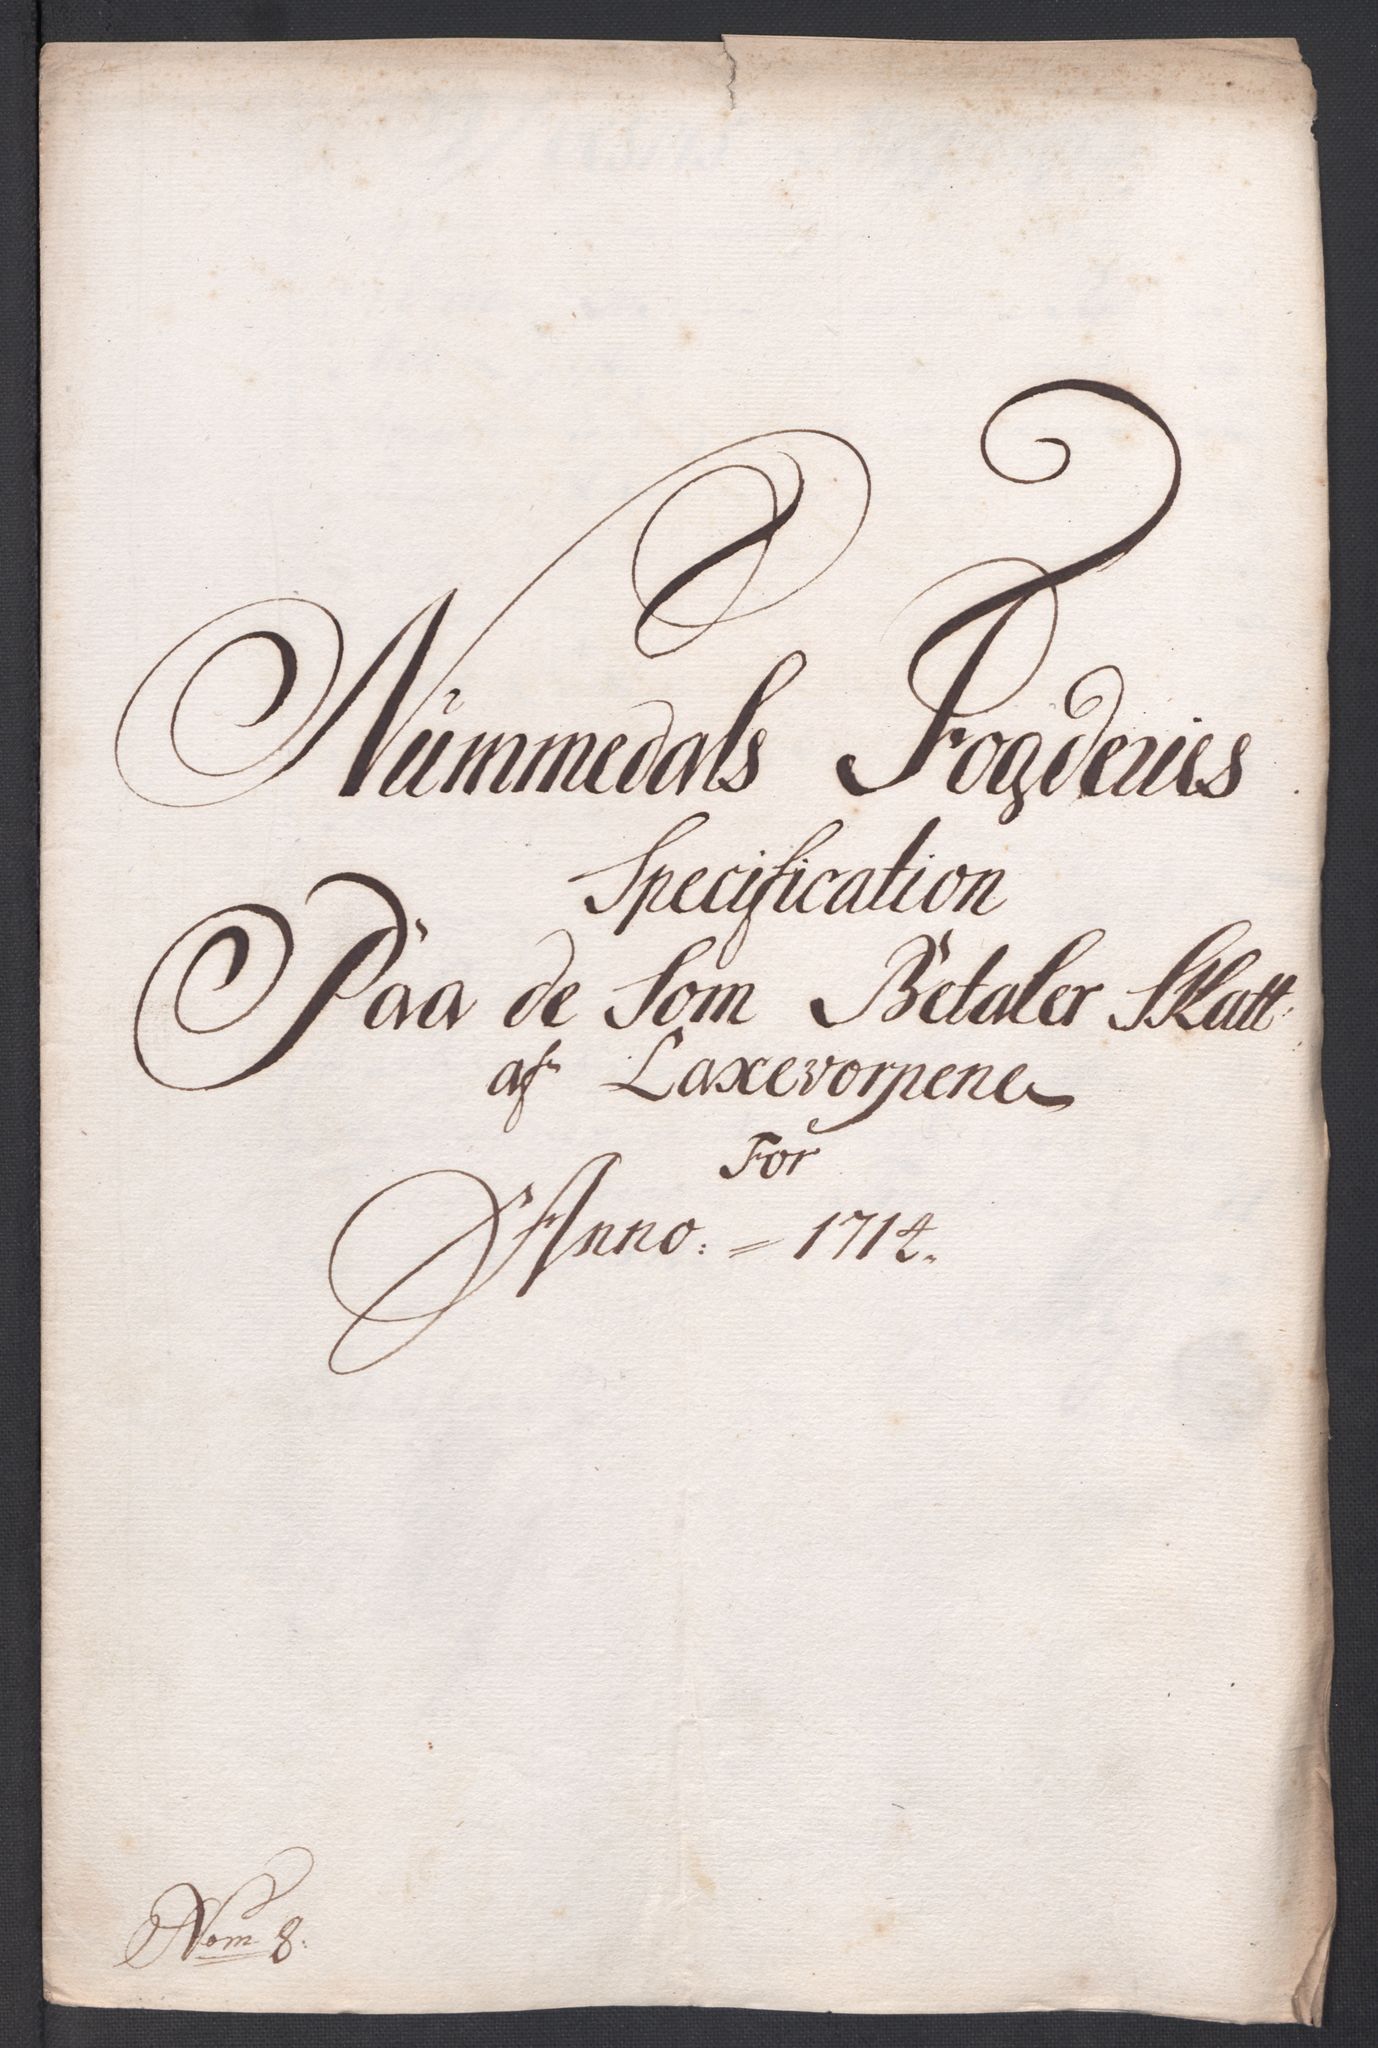 Nummedals Fogderies
Specification
Paa de som Betaler Skatt
af Laxevorpene
For
Anno. = 1714.
Nom 8.